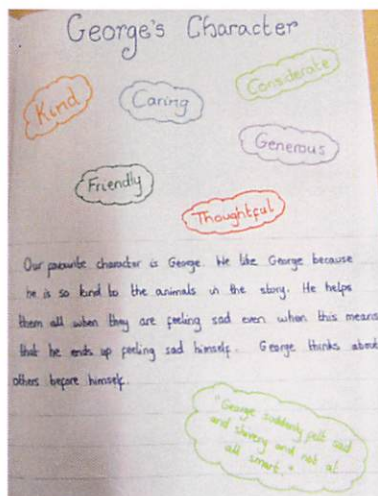 George's Character
Kind
Caring
Considerate
Generous
Friendly
Thoughtful
Our favourite character is George. We like George because
he is so kind to the animals in the story. He helps
them all when they are feeling sad even when this means
that he ends up feeling sad himself. George thinks about
others before himself.
"George suddenly felt sad
and slavery and not at
all smart."